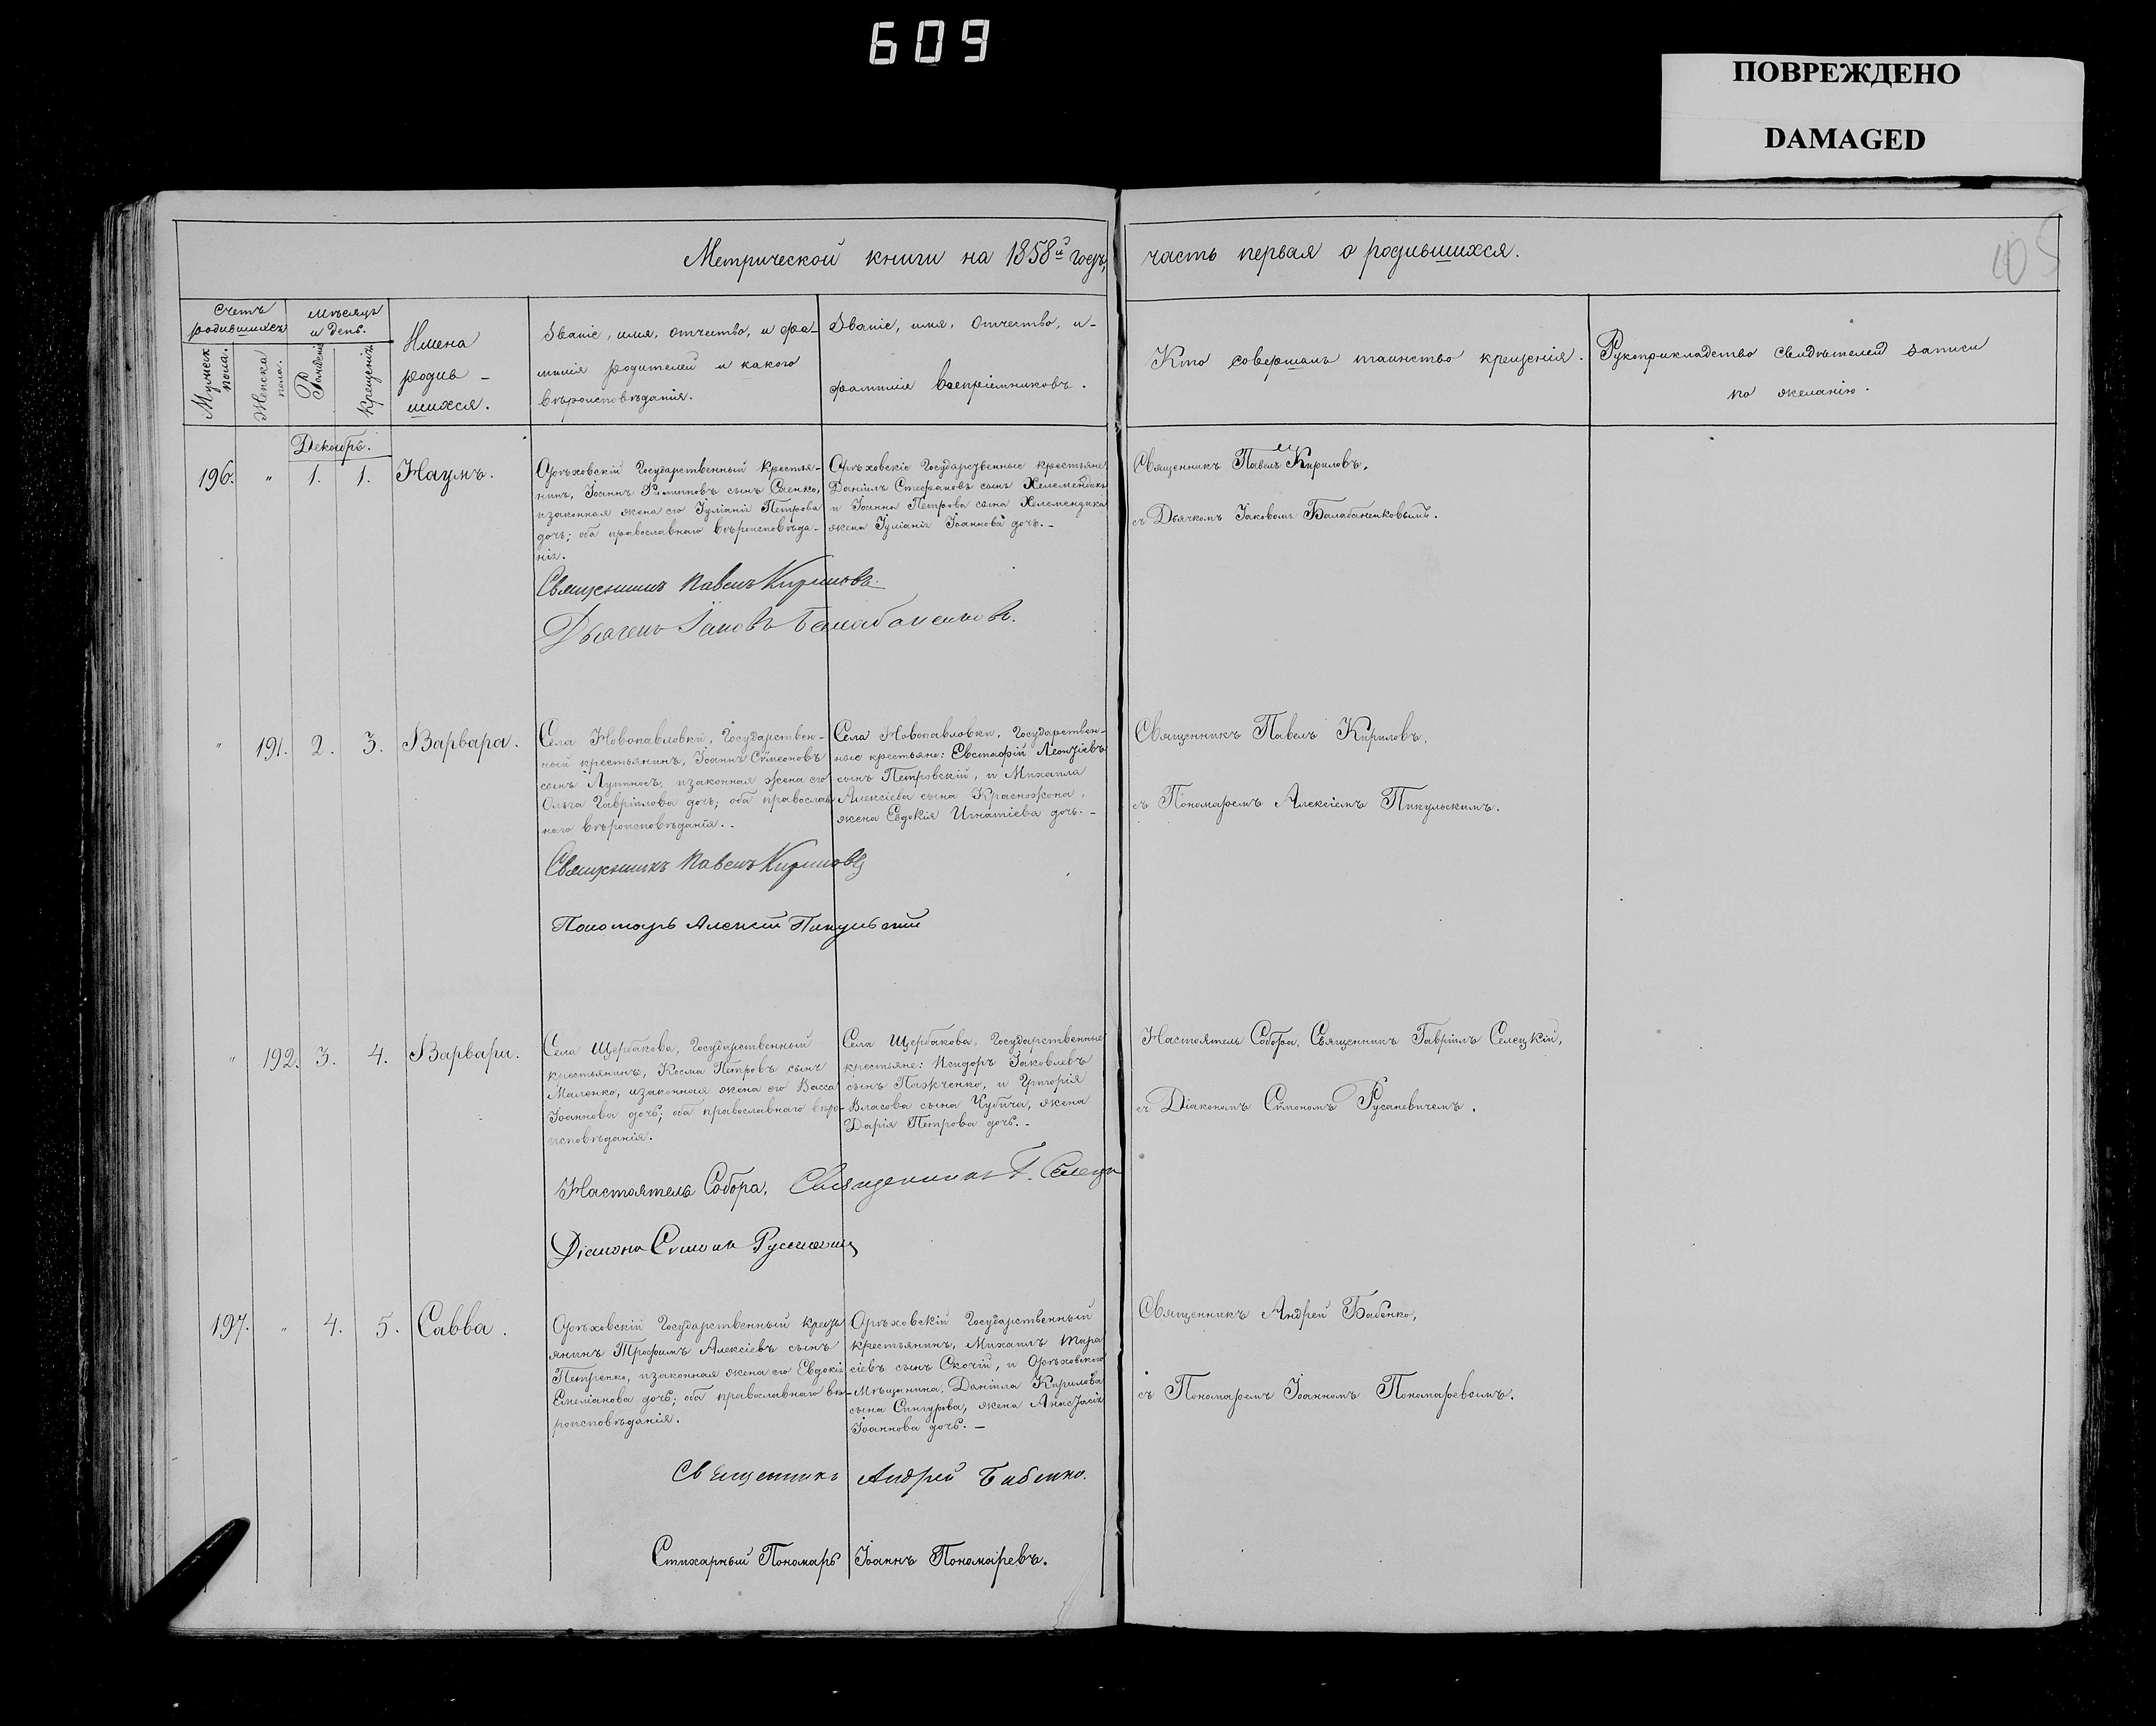 609
ПОВРЕЖДЕНО
DAMAGED
Метрической книги на 1858й годъ, часть первая о родившихся.
105
Счетъ родившихся
Мужеска пола.
Женска пола.
Мѣсяцъ и день.
Рожденія
Крещенія
Имена
родив-
шихся.
Званіе, имя, отчество, и фа-
милія родителей и какого
вѣроисповѣданія.
Званіе, имя, Отчество, и
фамилія воспріемниковъ.
Кто совершалъ таинство крещенія.
Рукоприкладство свидѣтелей записи
по желанію.
Декабрь.
196. " 1. 1. Наумъ.
Орѣховскій Государственный крестья-
нинъ, Іоаннъ Филипповъ сынъ Саенко,
и законная жена его Іуліанія Петрова
дочь; оба православнаго вѣроисповѣда-
нія.
Орѣховскіе Государственные крестьяне
Даніилъ Стефановъ сынъ Хелемендикъ
и Іоанна Петрова сына Хелемендика
жена Іуліанія Іоаннова дочь.-
Священникъ Павелъ Кириловъ,
съ Дьячкомъ Іаковомъ Балабаненковымъ.
Священникъ Павелъ Кириловъ.
Дьячекъ Іаковъ Балабаненковъ.
" 191. 2. 3. Варвара.
Села Новопавловки, Государствен-
ный крестьянинъ, Іоаннъ Симеоновъ
сынъ и законная жена его
Ольга Гавріилова дочь; оба православ
наго вѣроисповѣданія.-
Села Новопавловки, Государствен-
ные крестьяне: Евстафій Леонтіевъ
сынъ Петровскій, и Михаила
Алексіева сына Красножона,
жена Евдокія Игнатіева дочь.-
Священникъ Павелъ Кириловъ,
съ Пономаремъ Алексіемъ Пикульскимъ.
Священникъ Павелъ Кириловъ
Пономарь Алексій Пикульскій
" 192. 3. 4. Варвара.
Села Щербакова, Государственный
крестьянинъ, Косма Петровъ сынъ
Маленко, и законная жена его Васса
Іоаннова дочь; оба православнаго вѣро-
исповѣданія.
Села Щербакова, Государственные
крестьяне: Исидоръ Іаковлевъ
сынъ Пажченко, и Григорія
Власова сына Чубича, жена
Дарія Петрова дочь.-
Настоятель Собора, Священникъ Гавріилъ Селецкій,
съ Діакономъ Симономъ Русаневичемъ.
Настоятель Собора, Священникъ Г. Селецк
Діаконъ Симонъ Русаневичъ
197. " 4. 5. Савва.
Орѣховскій Государственный крест
янинъ Трофимъ Алексіевъ сынъ
Петренко, и законная жена его Евдокія
Емеліанова дочь; оба православнаго вѣ-
роисповѣданія.
Орѣховскій Государственный
крестьянинъ, Михаилъ Тара
сіевъ сынъ Скочій, и Орѣховскаго
Мѣщанина, Даніила Кирилова
сына Сингурова, жена Анастасія
Іоаннова дочь.-
Священникъ Андрей Бабенко,
съ Пономаремъ Іоанномъ Пономаревымъ.
Священникъ Андрей Бабенко.
Стихарный Пономарь Іоаннъ Пономаревъ.